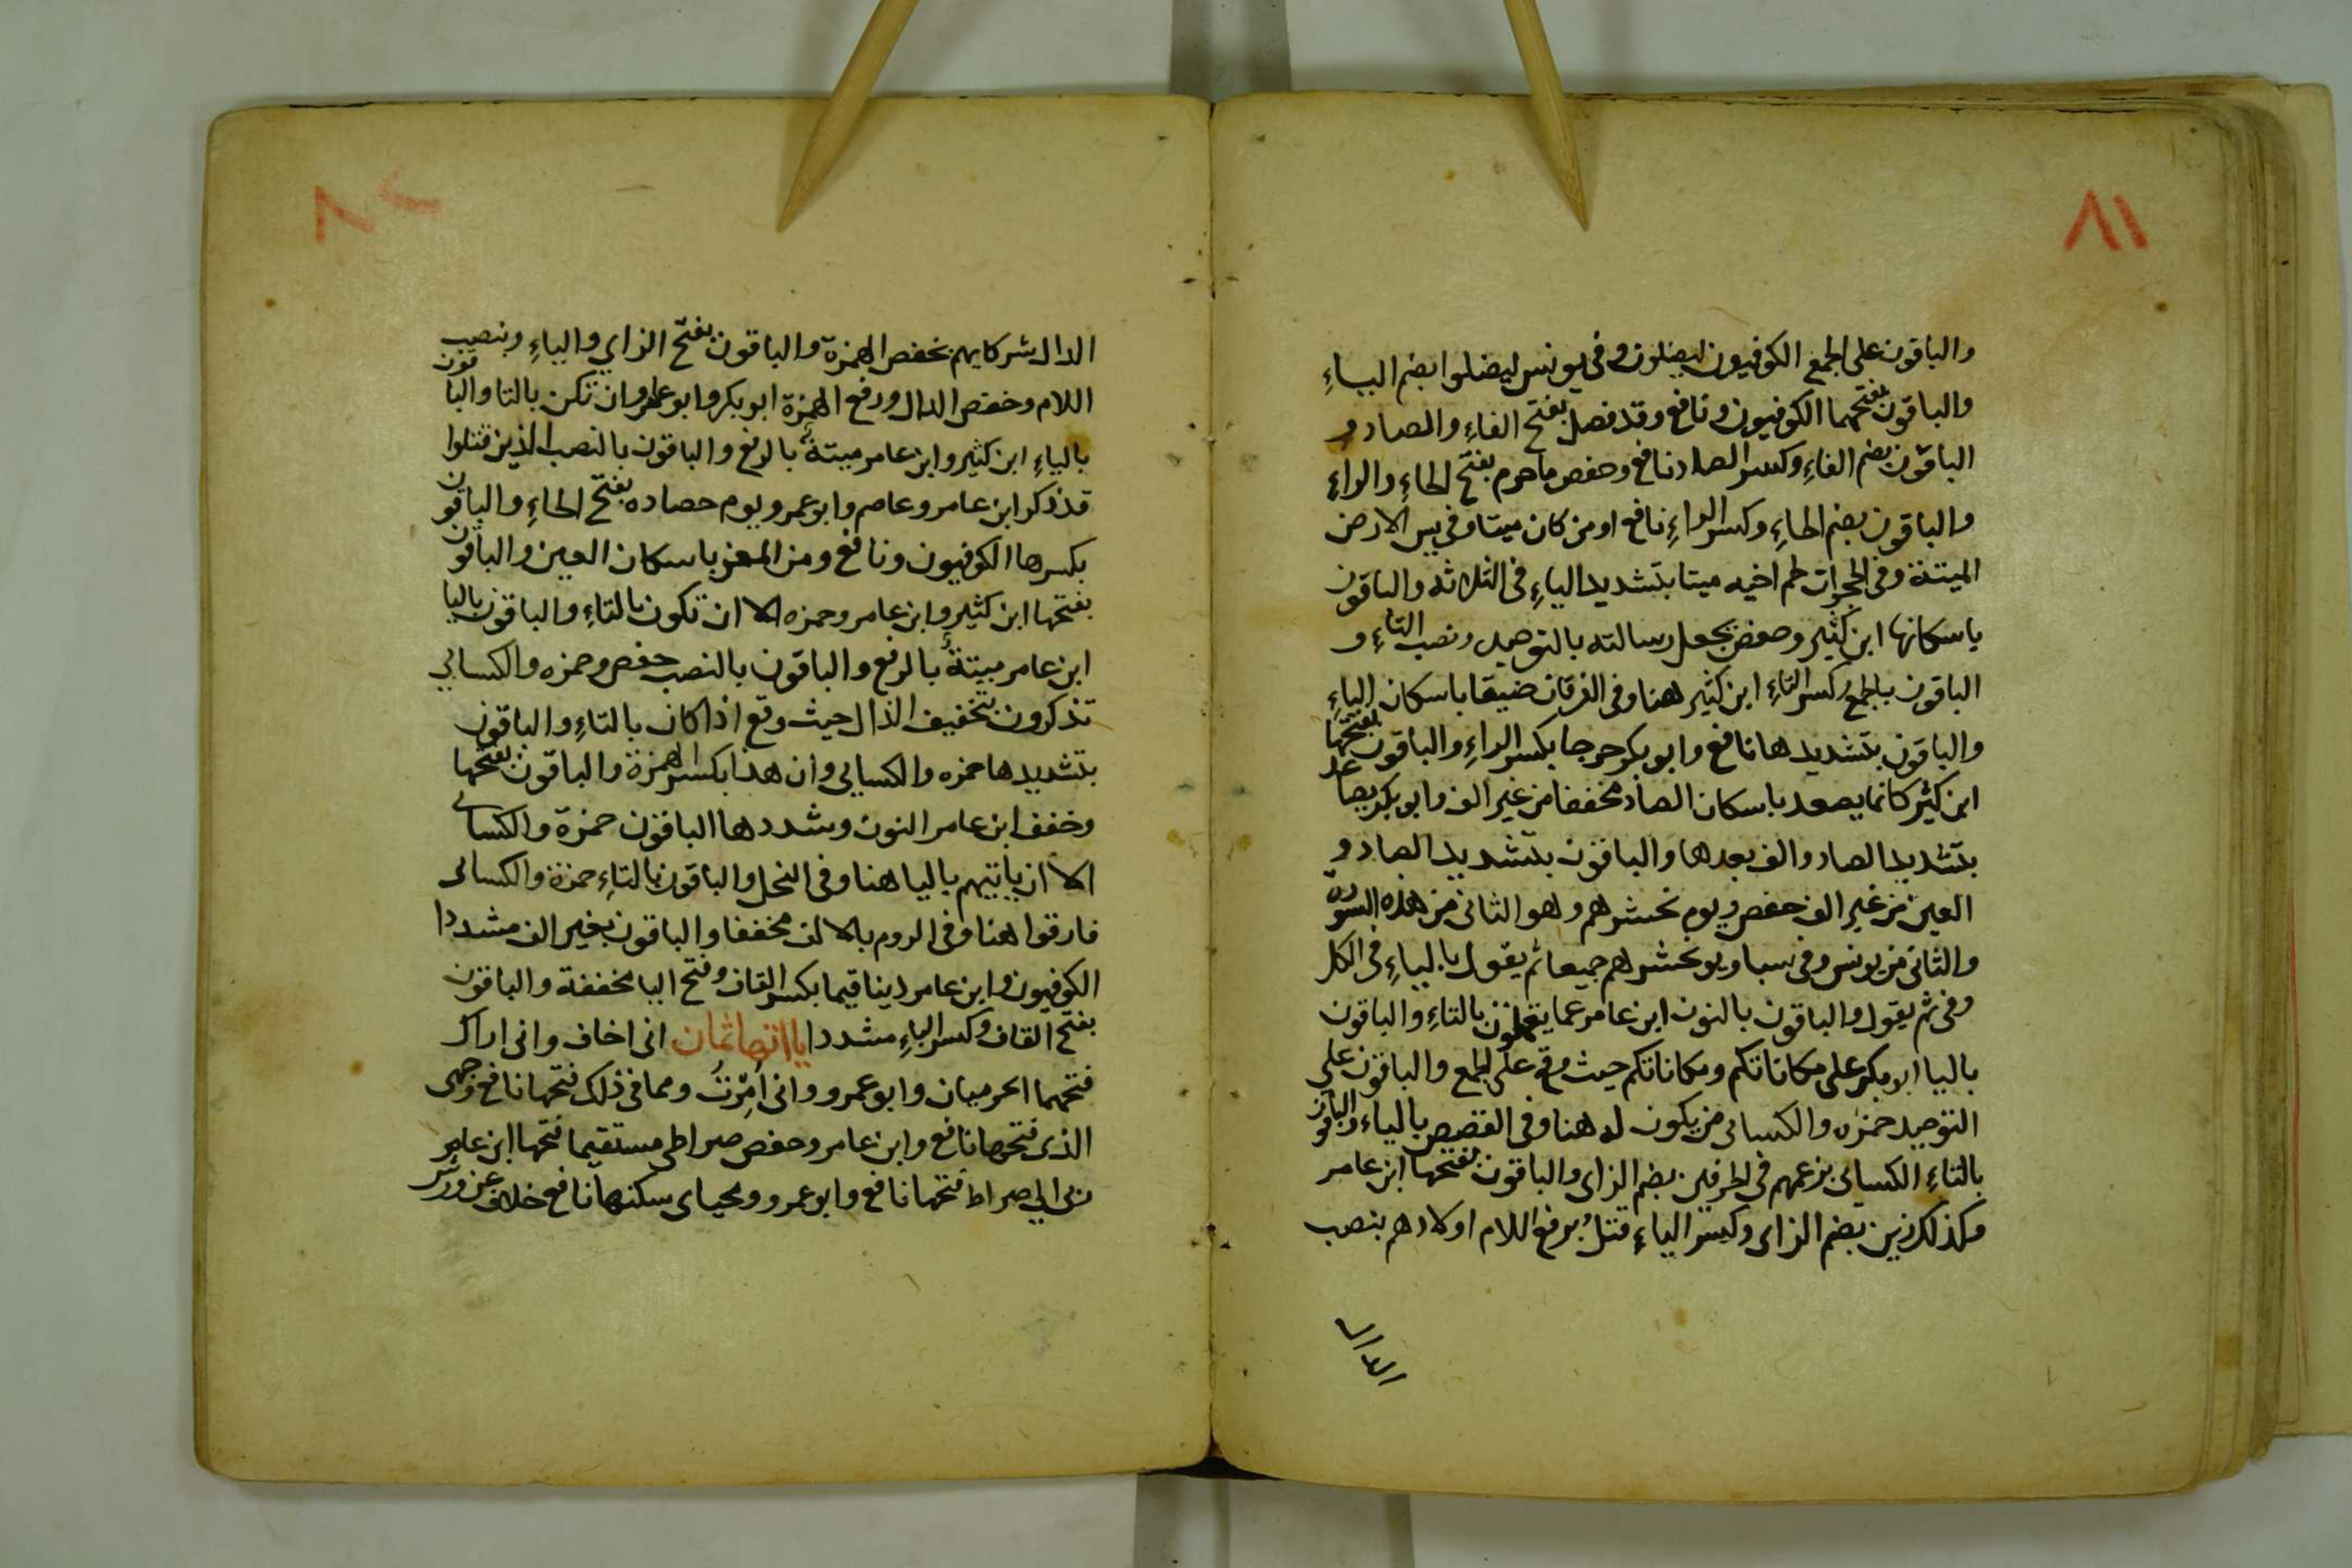 ٨١
والباقون على الجمع الكوفيون ليضلون وفى يونس ليضلوا بضم الياءِ
والباقون بفتحهما الكوفيون ونافع وقد فصل بفتح الفاءِ والصاد و
الباقون بضم الفاءِ وكسر الصاد نافع وحفص ما حرم بفتح الحاءِ والراءِ
والباقون بضم الحاءِ وكسر الراءِ نافع او من كان ميتا وفى يس الارض
الميتة وفى الحجرات لحم اخيه ميتا بتشديد الياءِ فى الثلاثه والباقون
باسكانها ابن كثير وحفص يجعل رسالته بالتوحيد ونصب التاءِ و
الباقون بالجمع وكسر التاءِ ابن كثير هنا وفى الفرقان ضيقا باسكان الياءِ
والباقون بتشديدها نافع وابو بكر حرجا بكسر الراءِ والباقون بفتحها
ابن كثير كانما يصعد باسكان الصاد مخففا من غير الف وابو بكر يصاعد
بتشديد الصاد والف بعدها والباقون بتشديد الصاد و
العين من غير الف حفص ويوم نحشرهم وهو الثانى من هذه السورة
والثانى من يونس وفى سبا ويوم نحشرهم جميعا ثم يقول بالياءِ فى الكل
وفى ثم يقول والباقون بالنون ابن عامر عما يعملون بالتاءِ والباقون
بالياا ابو بكر على مكاناتكم ومكاناتكم حيث وقع على الجمع والباقون على
التوحيد حمزه والكسائى من يكون له هنا وفى القصص بالياء والباقون
بالتاءِ الكسائى بزعمهم فى الحرفين بضم الزاى والباقون بفتحها ابن عامر
وكذلك زين بضم الزاى وكسر الياءِ قتلُ برفع اللام اولادهم بنصب
الدال
٨٢
الدال شركايهم بخفص الهمزة والباقون بفتح الزاي والياءِ ونصب
اللام وخفص الدال ورفع الهمزة ابو بكر وابو عامر وان تكن بالتا والباقون
بالياءِ ابن كثير وابن عامر ميتةٌ بالرفع والباقون بالنصب الذين قتلوا
قد ذكر ابن عامر وعاصم وابو عمرو يوم حصاده بفتح الحاءِ والباقون
بكسرها الكوفيون ونافع ومن المعز باسكان العين والباقون
بفتحها ابن كثير وابن عامر وحمزه الا ان تكون بالتاءِ والباقون باليا
ابن عامر ميتةٌ بالرفع والباقون بالنصب حفص وحمزه والكسائي
تذكرون بتخفيف الذال حيث وقع اذا كان بالتاءِ والباقون
بتشديدها حمزه والكسايي وان هذا بكسر الهمزة والباقون بفتحها
وخفف ابن عامر النون وشددها الباقون حمزة والكسائى
الا ان ياتيهم باليا هنا وفى النحل والباقون بالتاءِ حمزة والكسائى
فارقوا هنا وفى الروم بالالف مخففا والباقون بغير الف مشددا
الكوفيون وابن عامر دينا قيما بكسر القاف وفتح اليا مخففة والباقون
بفتح القاف وكسر الياءِ مشددا يااتها ثمان انى اخاف وانى اراك
فتحهما الحرميان وابو عمرو وانى اُمِرْتُ ومماتى ذلك فتحها نافع وجهى
الذى فتحها نافع وابن عامر وحفص صراطى مستقيما فتحها ابن عامر
ربى الي صراط فتحها نافع وابو عمرو ومحياى سكنها نافع خلاف عن ورش